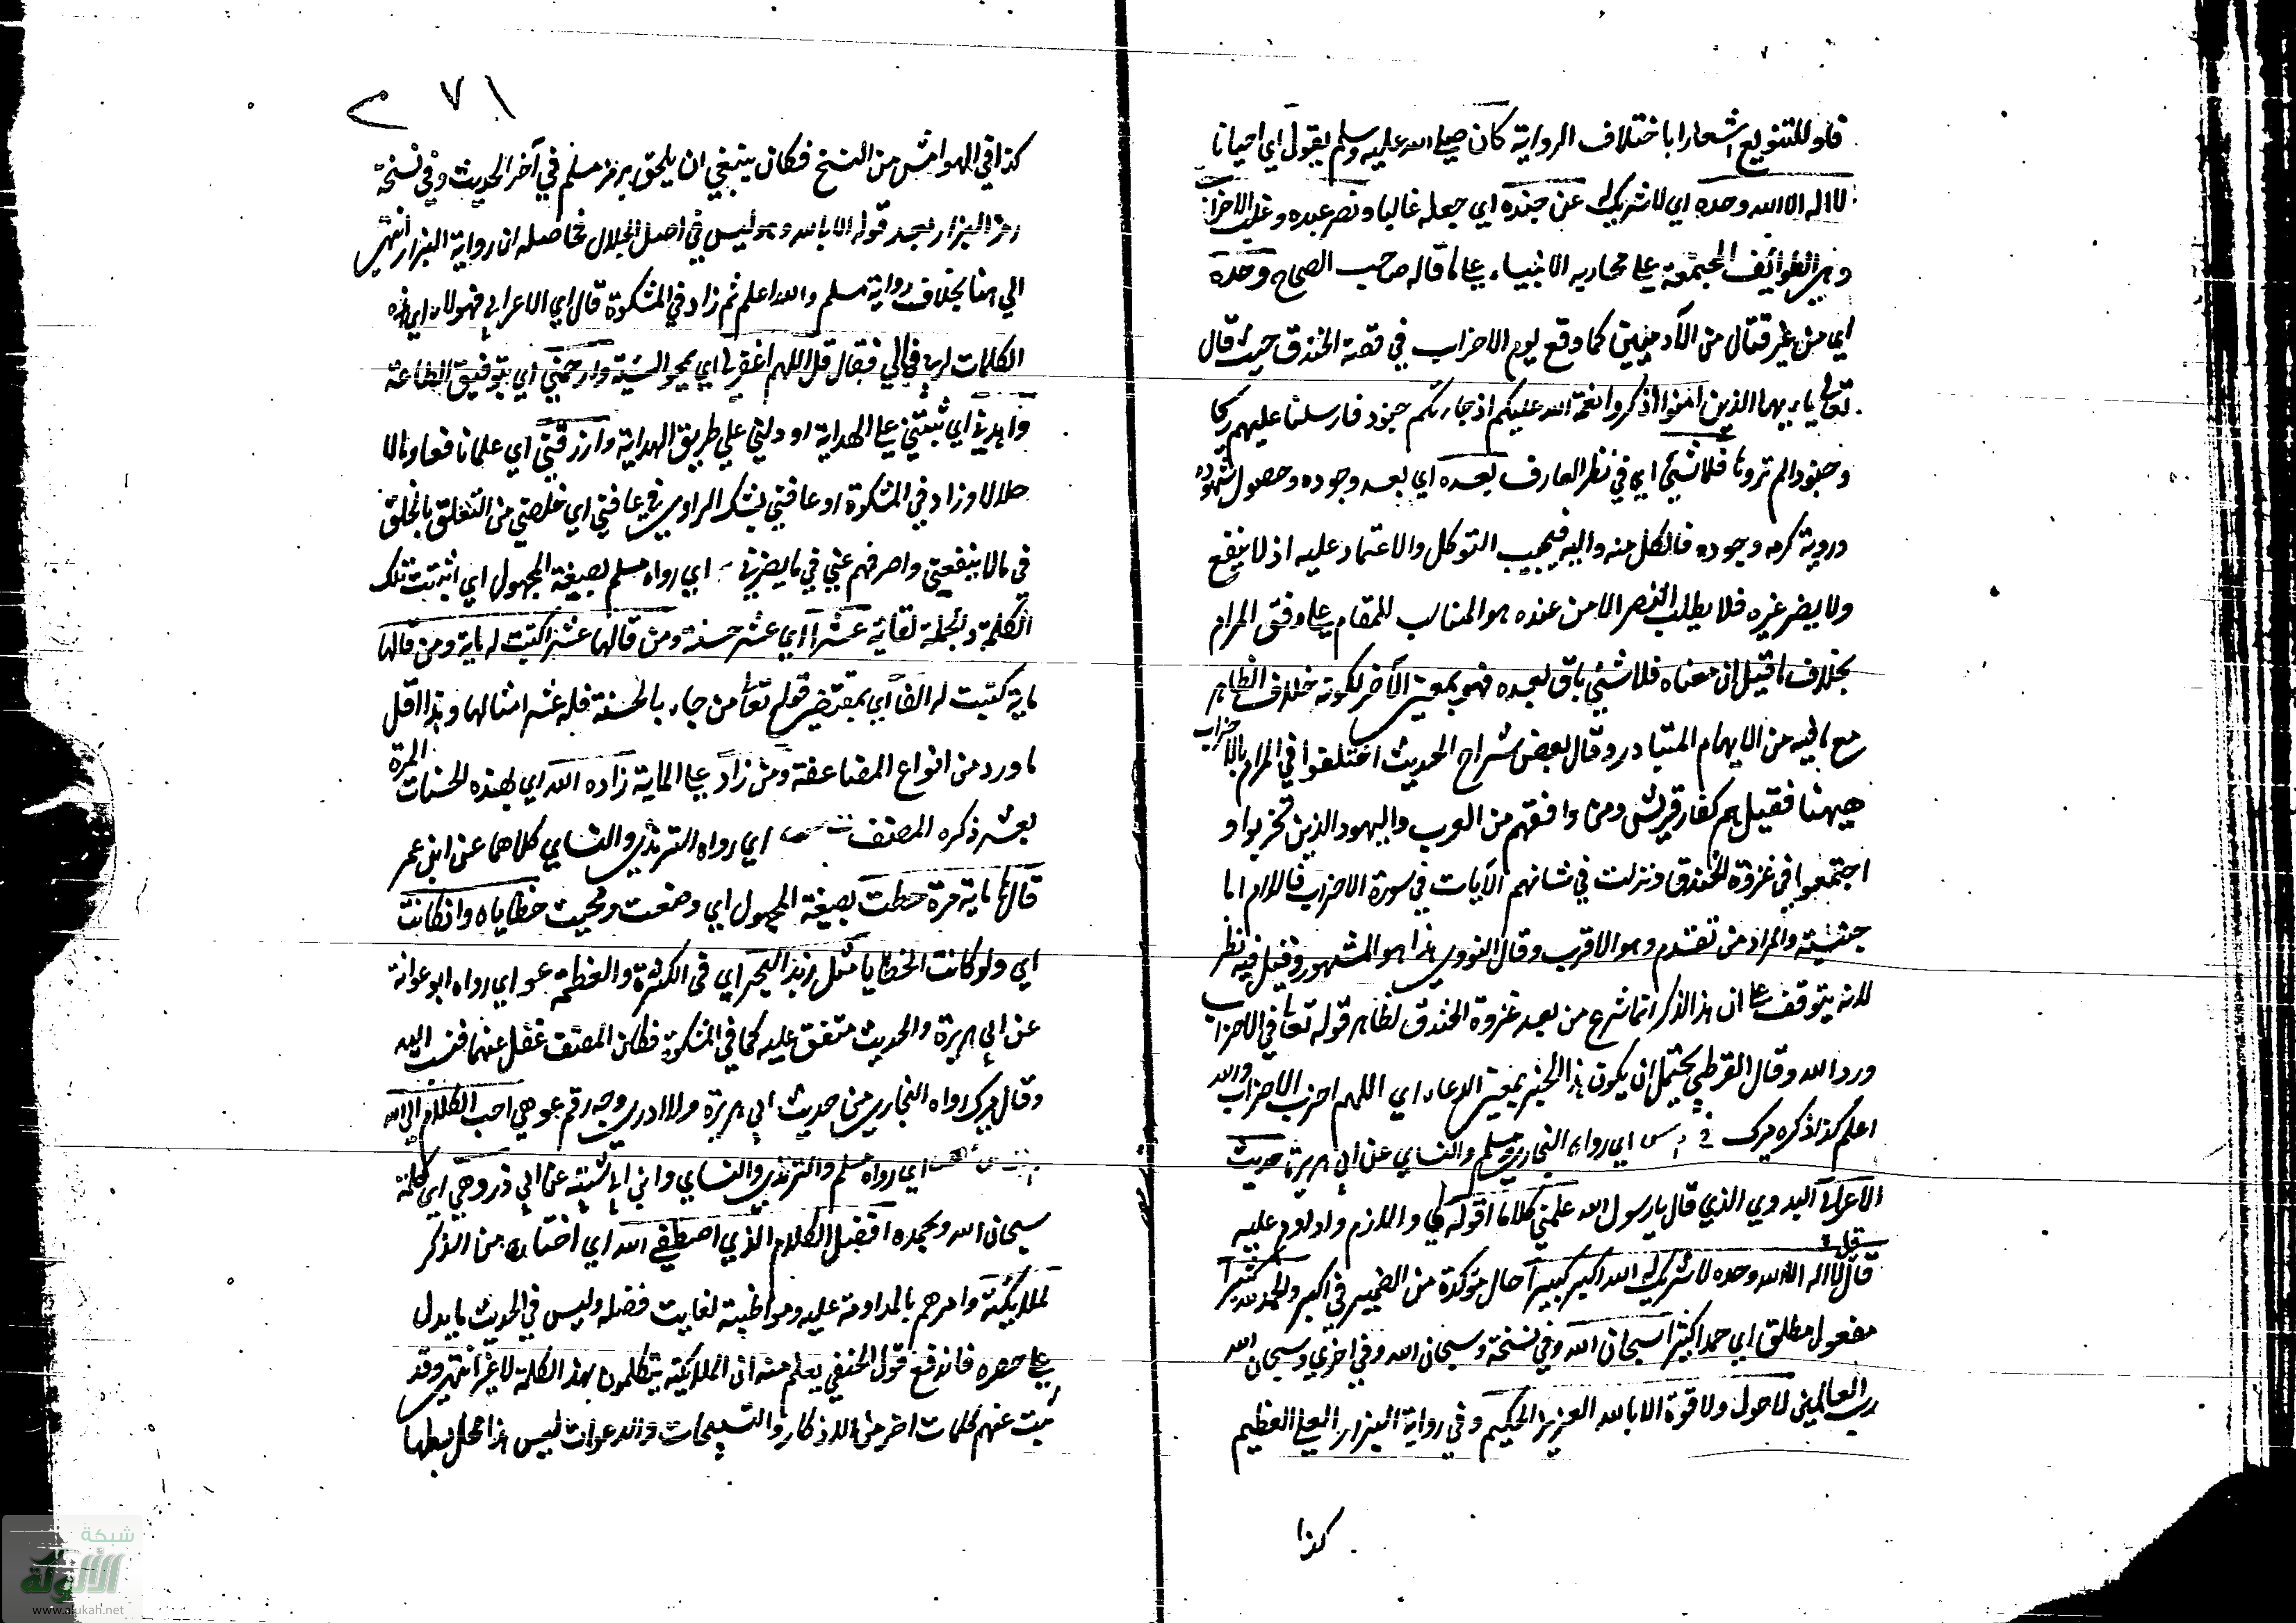 فاو للتنويع اشعارا باختلاف الرواية كان صلى الله عليه وسلم يقول اي احيانا
لا اله الا الله وحده اي لا شريك له عن جنده اي جعله غالبا ونصر عبده وغلب الاحزاب
وهم الطوائف المجتمعة على محاربه الانبياء على ما قاله صاحب الصحاح وحده
اي من غير قتال من الآدميين كما وقع يوم الاحزاب في قصة الخندق حيث قال
تعالى يا ايها الذين امنوا اذكروا نعمة الله عليكم اذ جاءتكم جنود فارسلنا عليهم ريحا
وجنودا لم تروها فلا شيء اي في نظر العارف بعده اي بعد وجوده وحصول شهوده
وروية كرمه وجوده فالكل منه واليه فيجب التوكل والاعتماد عليه اذ لا ينفع
ولا يضر غيره فلا يطلب النصر الا من عنده هو المناسب للمقام على وفق المرام
بخلاف ما قيل ان معناه فلا شيء باق بعده فهو بمعنى الآخر لكونه خلاف الظاهر
مع ما فيه من الايهام المتبادر وقال بعض شراح الحديث اختلفوا في المراد بالاحزاب
هيهنا فقيل هم كفار قريش ومن وافقهم من العرب واليهود الذين تحزبوا و
اجتمعوا في غزوة الخندق ونزلت في شانهم الآيات في سورة الاحزاب فاللام اما
جنسية والمراد من تقدم وهو الاقرب وقال النووي هذا هو المشهور وقيل فيه نظر
لانه يتوقف على ان هذا الذكر انما شرع من بعد غزوة الخندق لظاهر قوله تعا في الاحزاب
ورد الله وقال القرطبي يحتمل ان يكون هذا الخبر بمعنى الدعاء اي اللهم احزب الاحزاب والله
اعلم كذا ذكره ميرك خ م س اي رواه البخاري ومسلم والنساي عن ابي هريرة حديث
الاعرابي البدوي الذي قال يا رسول الله علمني كلاما اقوله اي والازم واداوم عليه
قال قل لا اله الا الله وحده لا شريك له الله اكبر كبيرا حال مؤكدة من الضمير في اكبر والحمد لله كثيرا
مفعول مطلق اي حمدا كثيرا سبحان الله وفي نسخة وسبحان الله وفي اخرى وسبحان الله
رب العالمين لا حول ولا قوة الا بالله العزيز الحكيم وفي رواية البزار العلي العظيم
كذا
٢٧١
كذا في الهوامش من النسخ فكان ينبغي ان يلحق برمز مسلم في آخر الحديث وفي نسخة
رمز البزار بعد قوله الا بالله وهو ليس في اصل الجلال فحاصله ان رواية البزار انتهى
الى هنا بخلاف رواية مسلم والله اعلم ثم زاد في المشكوة قال اي الاعرابي فهولاء اي هذه
الكلمات لربي فما لي فقال قل اللهم اغفر لي اي بمحو السيئة وارحمني اي بتوفيق الطاعة
واهدني اي ثبتني على الهداية او دلني على طريق الهداية وارزقني اي علما نافعا ومالا
حلالا وزاد في المشكوة او عافني بشك الراوي في عافني اي خلصني من التعلق بالخلق
في ما لا ينفعني واصرفهم عني في ما يضرني م اي رواه مسلم بصيغة المجهول اي اثبتت تلك
الكلمة والجملة لقائه عشرا اي عشر حسنة ومن قالها عشرا كتبت له ماية ومن قالها
ماية كتبت له الفا اي بمقتضى قوله تعا من جاء بالحسنة فله عشر امثالها وهذا اقل
ما ورد من انواع المضاعفة ومن زاد على الماية زاده الله اي بهذه الحسنات المرة
بعشر ذكره المصنف ت س اي رواه الترمذي والنساي كلاهما عن ابن عمر
قالها ماية مرة حطت بصيغة المجهول اي وضعت ومحيت خطاياه وان كانت
اي ولو كانت الخطايا مثل زبد البحر اي في الكثرة والعظمة عو اي رواه ابو عوانة
عن ابي هريرة والحديث متفق عليه كما في المشكوة فكان المصنف غفل عنهما فنسب اليه
وقال ميرك رواه البخاري من حديث ابي هريرة ولا ادري وجه رقم عو هي احب الكلام الى الله
م ت س مص اي رواه مسلم والترمذي والنساي وابن ابي شيبة عن ابي ذر وهي اي كلمة
سبحان الله وبحمده افضل الكلام الذي اصطفى الله اي اختاره من الذكر
لملائكته وامرهم بالمداومة عليه ومواظبته لغاية فضله وليس في الحديث ما يدل
على حصره فاندفع قول الحنفي يعلم منه ان الملائكته يتكلمون بهذا الكلمة لا غير انتهى وقد
ثبت عنهم كلمات اخر من الاذكار والتسبيحات والدعوات ليس هذا محل بسطها
شبكة
الألوكة
www.alukah.net